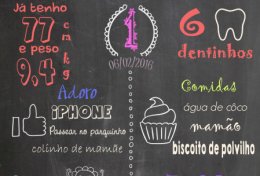 Já tenho
77 cm
e peso
9,4 kg
1
06/02/2016
6
dentinhos
Adoro
iPHONE
Passear no parquinho
colinho de mamãe
Comidas
água de côco
mamão
biscoito de polvilho